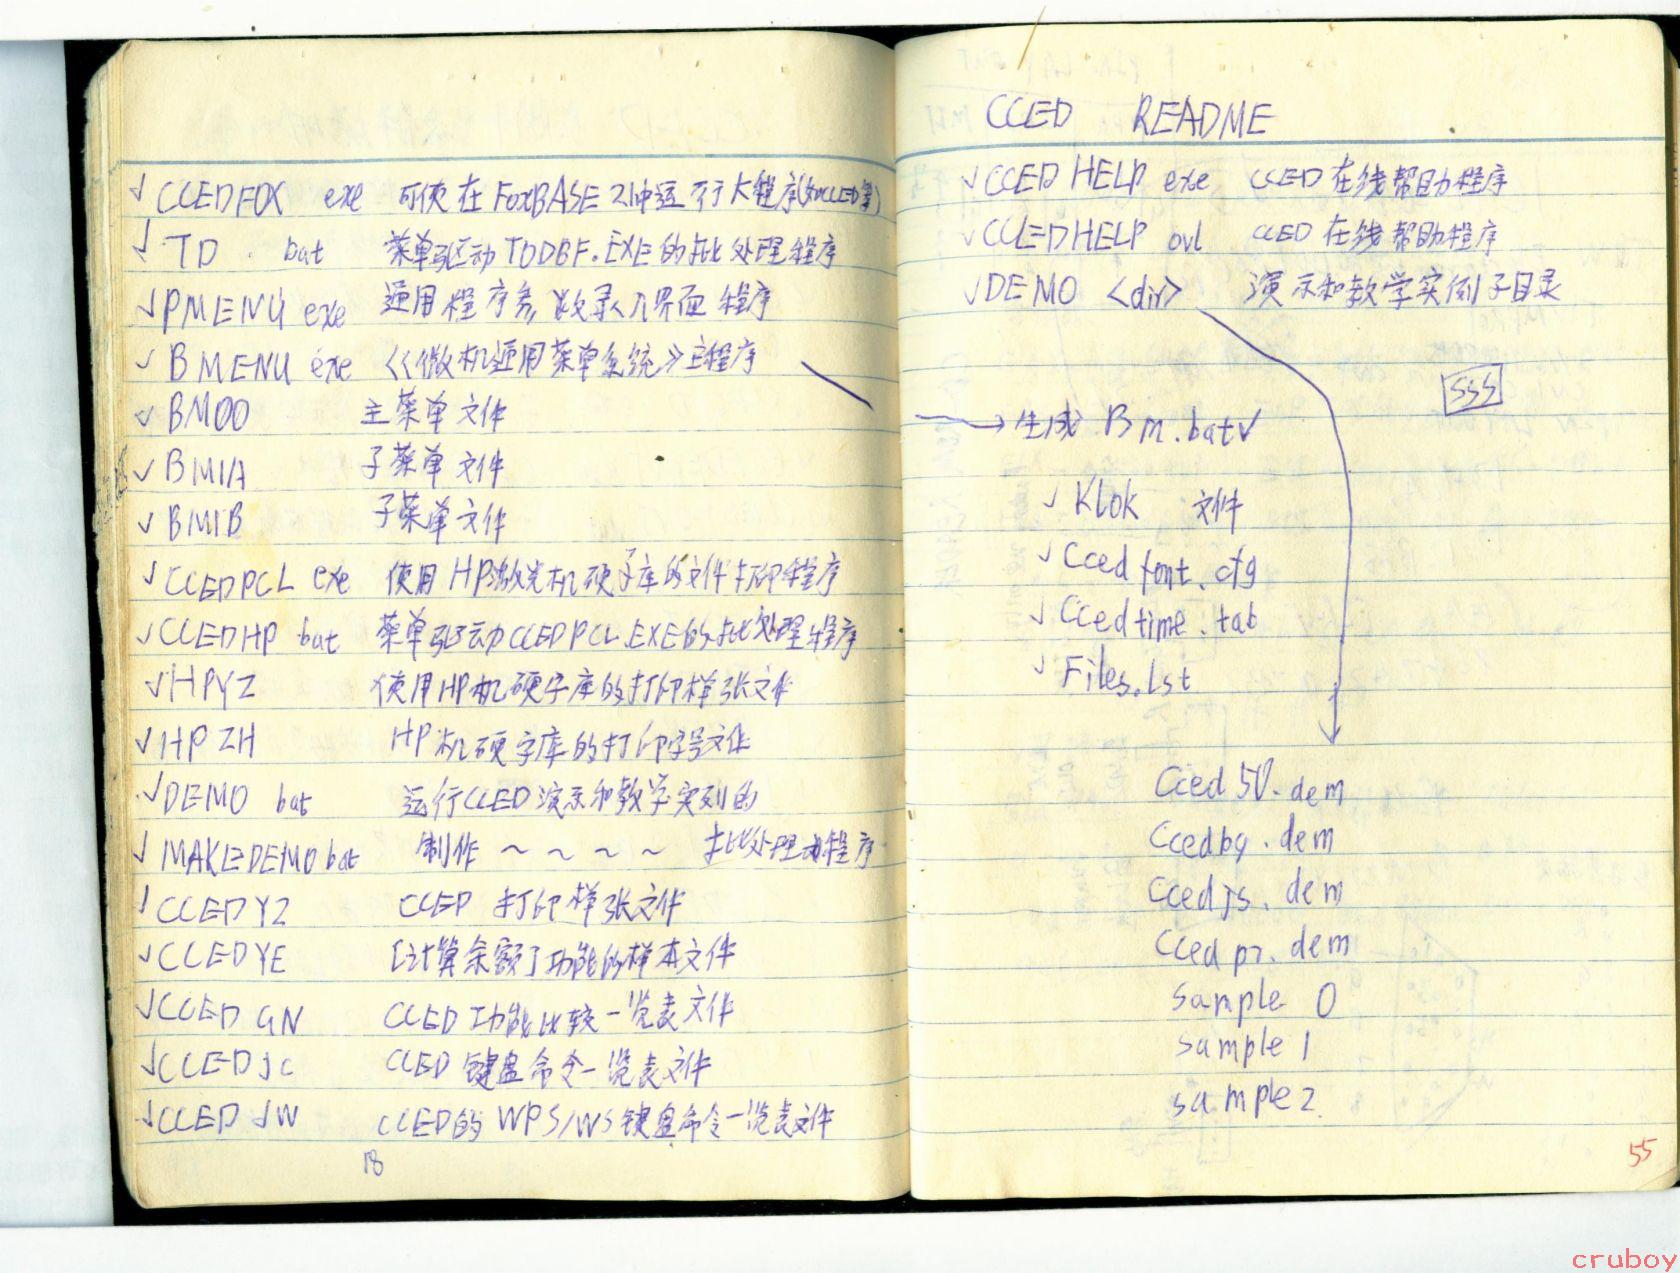 ✓ CCEDFOX exe 可使在FoxBASE 2.1中运行大程序(如CCED等)
✓ TD . bat 菜单驱动TODBF.EXE的批处理程序
✓ PMENU exe 通用程序参数录入界面程序
✓ BMENU exe 《微机通用菜单系统》主程序
✓ BM00 主菜单文件
✓ BM1A 子菜单文件
✓ BM1B 子菜单文件
✓ CCEDPCL exe 使用HP激光机硬字库的文件打印程序
✓ CCEDHP bat 菜单驱动CCEDPCL.EXE的批处理程序
✓ HPYZ 使用HP机硬字库的打印样张文件
✓ HPZH HP机硬字库的打印字号文件
✓ DEMO bat 运行CCED演示和教学实列的
✓ MAKEDEMO bat 制作 ~ ~ ~ ~ 批处理程序
✓ CCEDYZ CCED 打印样张文件
✓ CCEDYE [计算余额]功能的样本文件
✓ CCED GN CCED功能比较一览表文件
✓ CCED JC CCED 键盘命令一览表文件
✓ CCED JW CCED的 WPS/WS键盘命令一览表文件
18
CCED README
✓ CCED HELP exe CCED在线帮助程序
✓ CCEDHELP ovl CCED在线帮助程序
✓ DEMO <dir> 演示和教学实例子目录
SSS
→ 生成 Bm.bat✓
✓ Klok 文件
✓ Ccedfont.cfg
✓ Ccedtime.tab
✓ Files.lst
Cced50.dem
Ccedbg.dem
Ccedjs.dem
Ccedpr.dem
sample 0
sample 1
sample 2.
55
cruboy